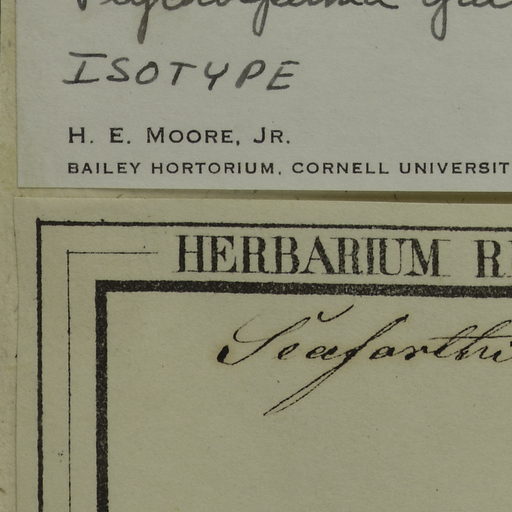 ISOTYPE
H. E. MOORE, JR.
BAILEY HORTORIUM, CORNELL UNIVERSIT
HERBARIUM R
Seaforthi